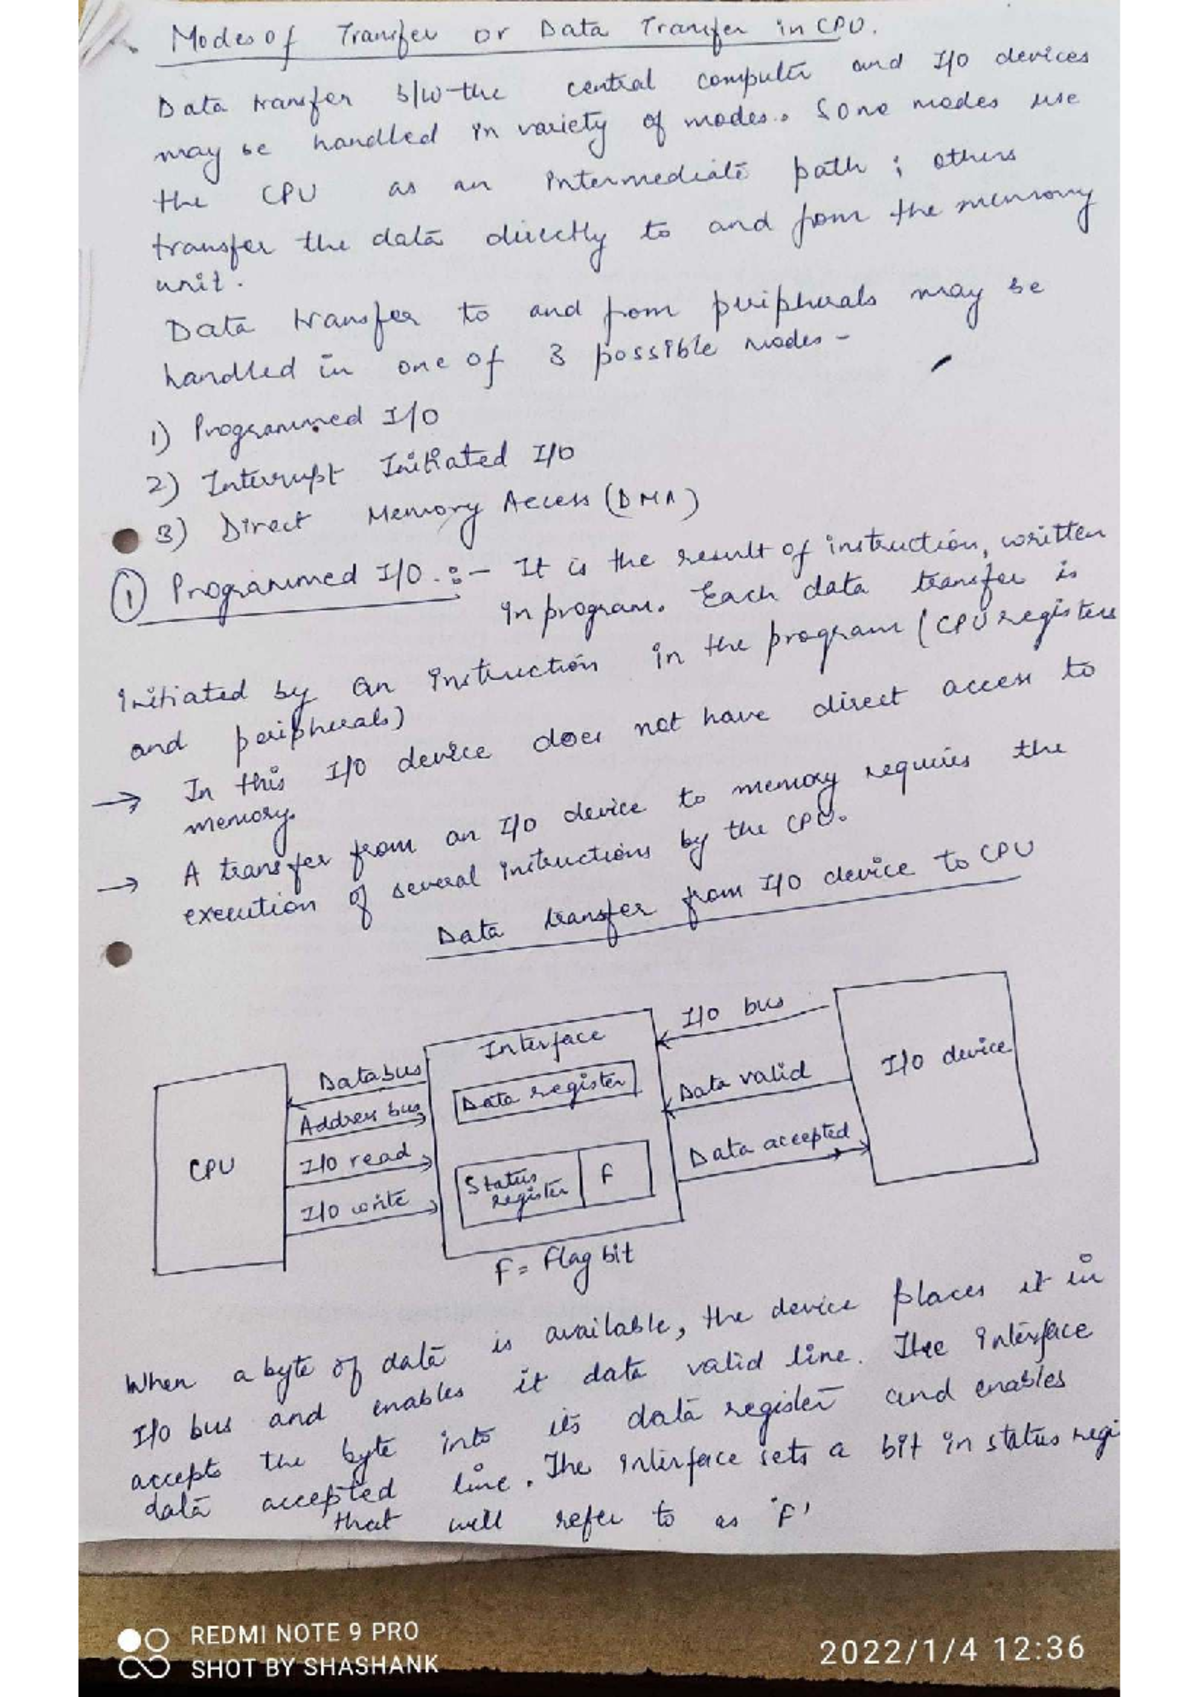 Modes of Transfer or Data Transfer in CPU.
Data transfer b/w the central computer and I/O devices
may be handled in variety of modes. Some modes use
the CPU as an intermediate path ; others
transfer the data directly to and from the memory
unit.
Data transfer to and from peripherals may be
handled in one of 3 possible modes -
1) Programmed I/O
2) Interrupt Initiated I/O
3) Direct Memory Access (DMA)
① Programmed I/O. :- It is the result of instruction, written
in program. Each data transfer is
initiated by an instruction in the program (CPU registers
and peripherals)
→ In this I/O device does not have direct access to
memory.
→ A transfer from an I/O device to memory requires the
execution of several instructions by the CPU.
Data transfer from I/O device to CPU
CPU
Databus
Address bus
I/O read
I/O write
Interface
Data register
Status register
F
F = Flag bit
I/O bus
Data valid
Data accepted
I/O device
When a byte of data is available, the device places it in
I/O bus and enables it data valid line. The interface
accepts the byte into its data register and enables
data accepted line. The interface sets a bit in status regi
that will refer to as 'F'
REDMI NOTE 9 PRO
SHOT BY SHASHANK
2022/1/4 12:36